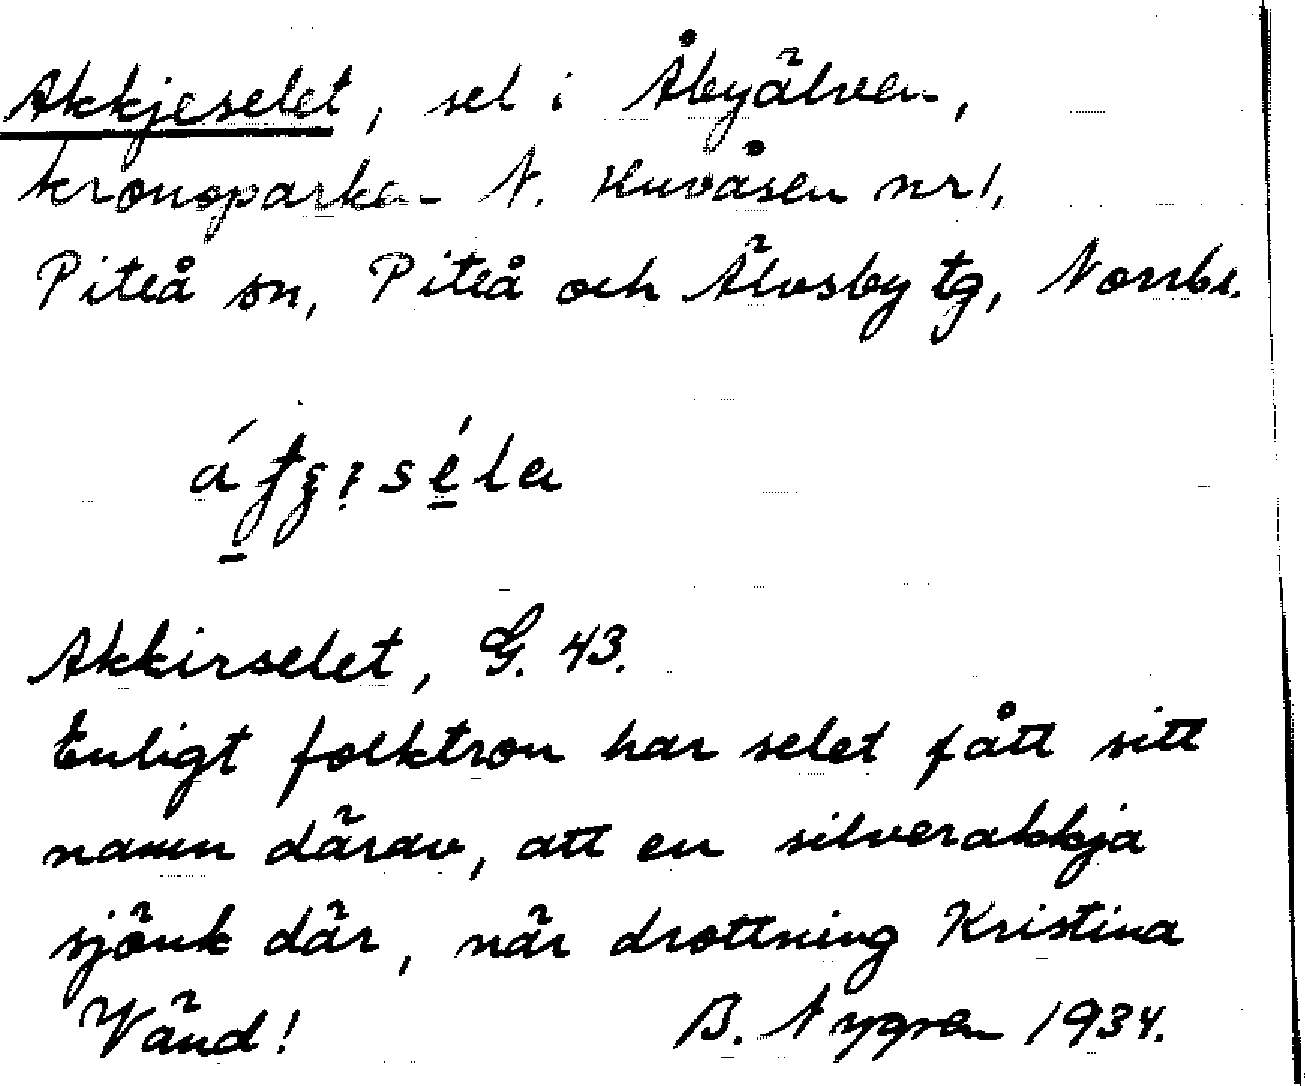 Akkjeselet, sel i Åbyälven,
kronoparken N. Huvåsen nr 1,
Piteå sn, Piteå och Älvsby tg, Norrb.
Akkirselet, G. 43.
Enligt folktron har selet fått sitt
namn därav, att en silverakkja
sjönk där, när drottning Kristina
Vänd! B. Nygren 1934.